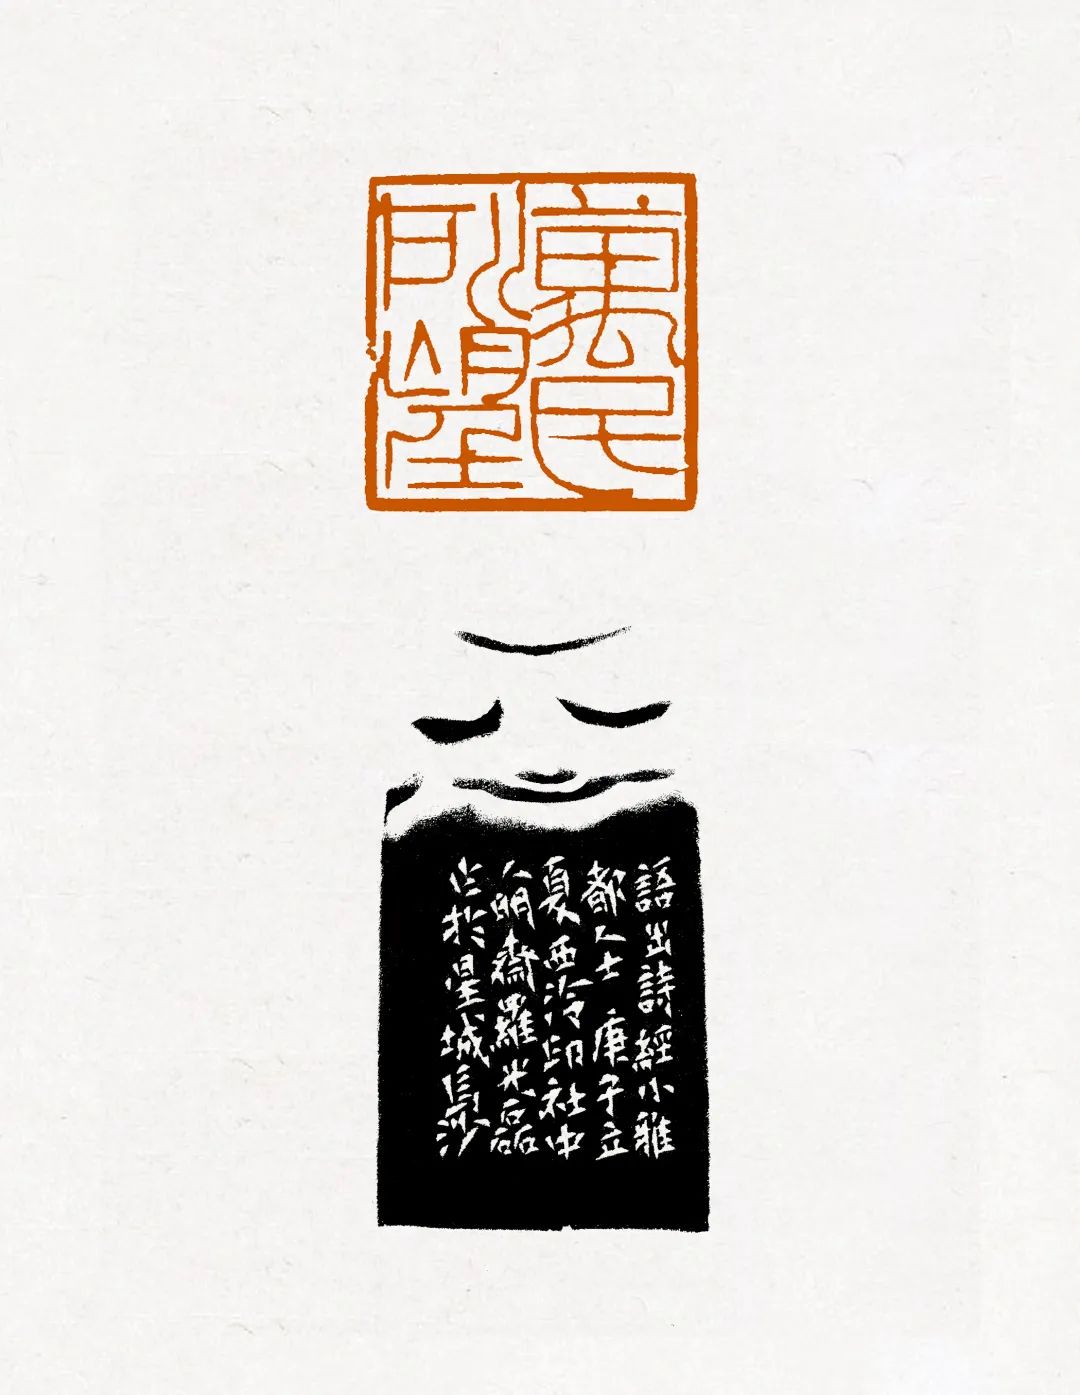 萬民
所望
語出詩經小雅
都人士 庚子立
夏西泠印社中
人明齋羅光磊
作於星城長沙